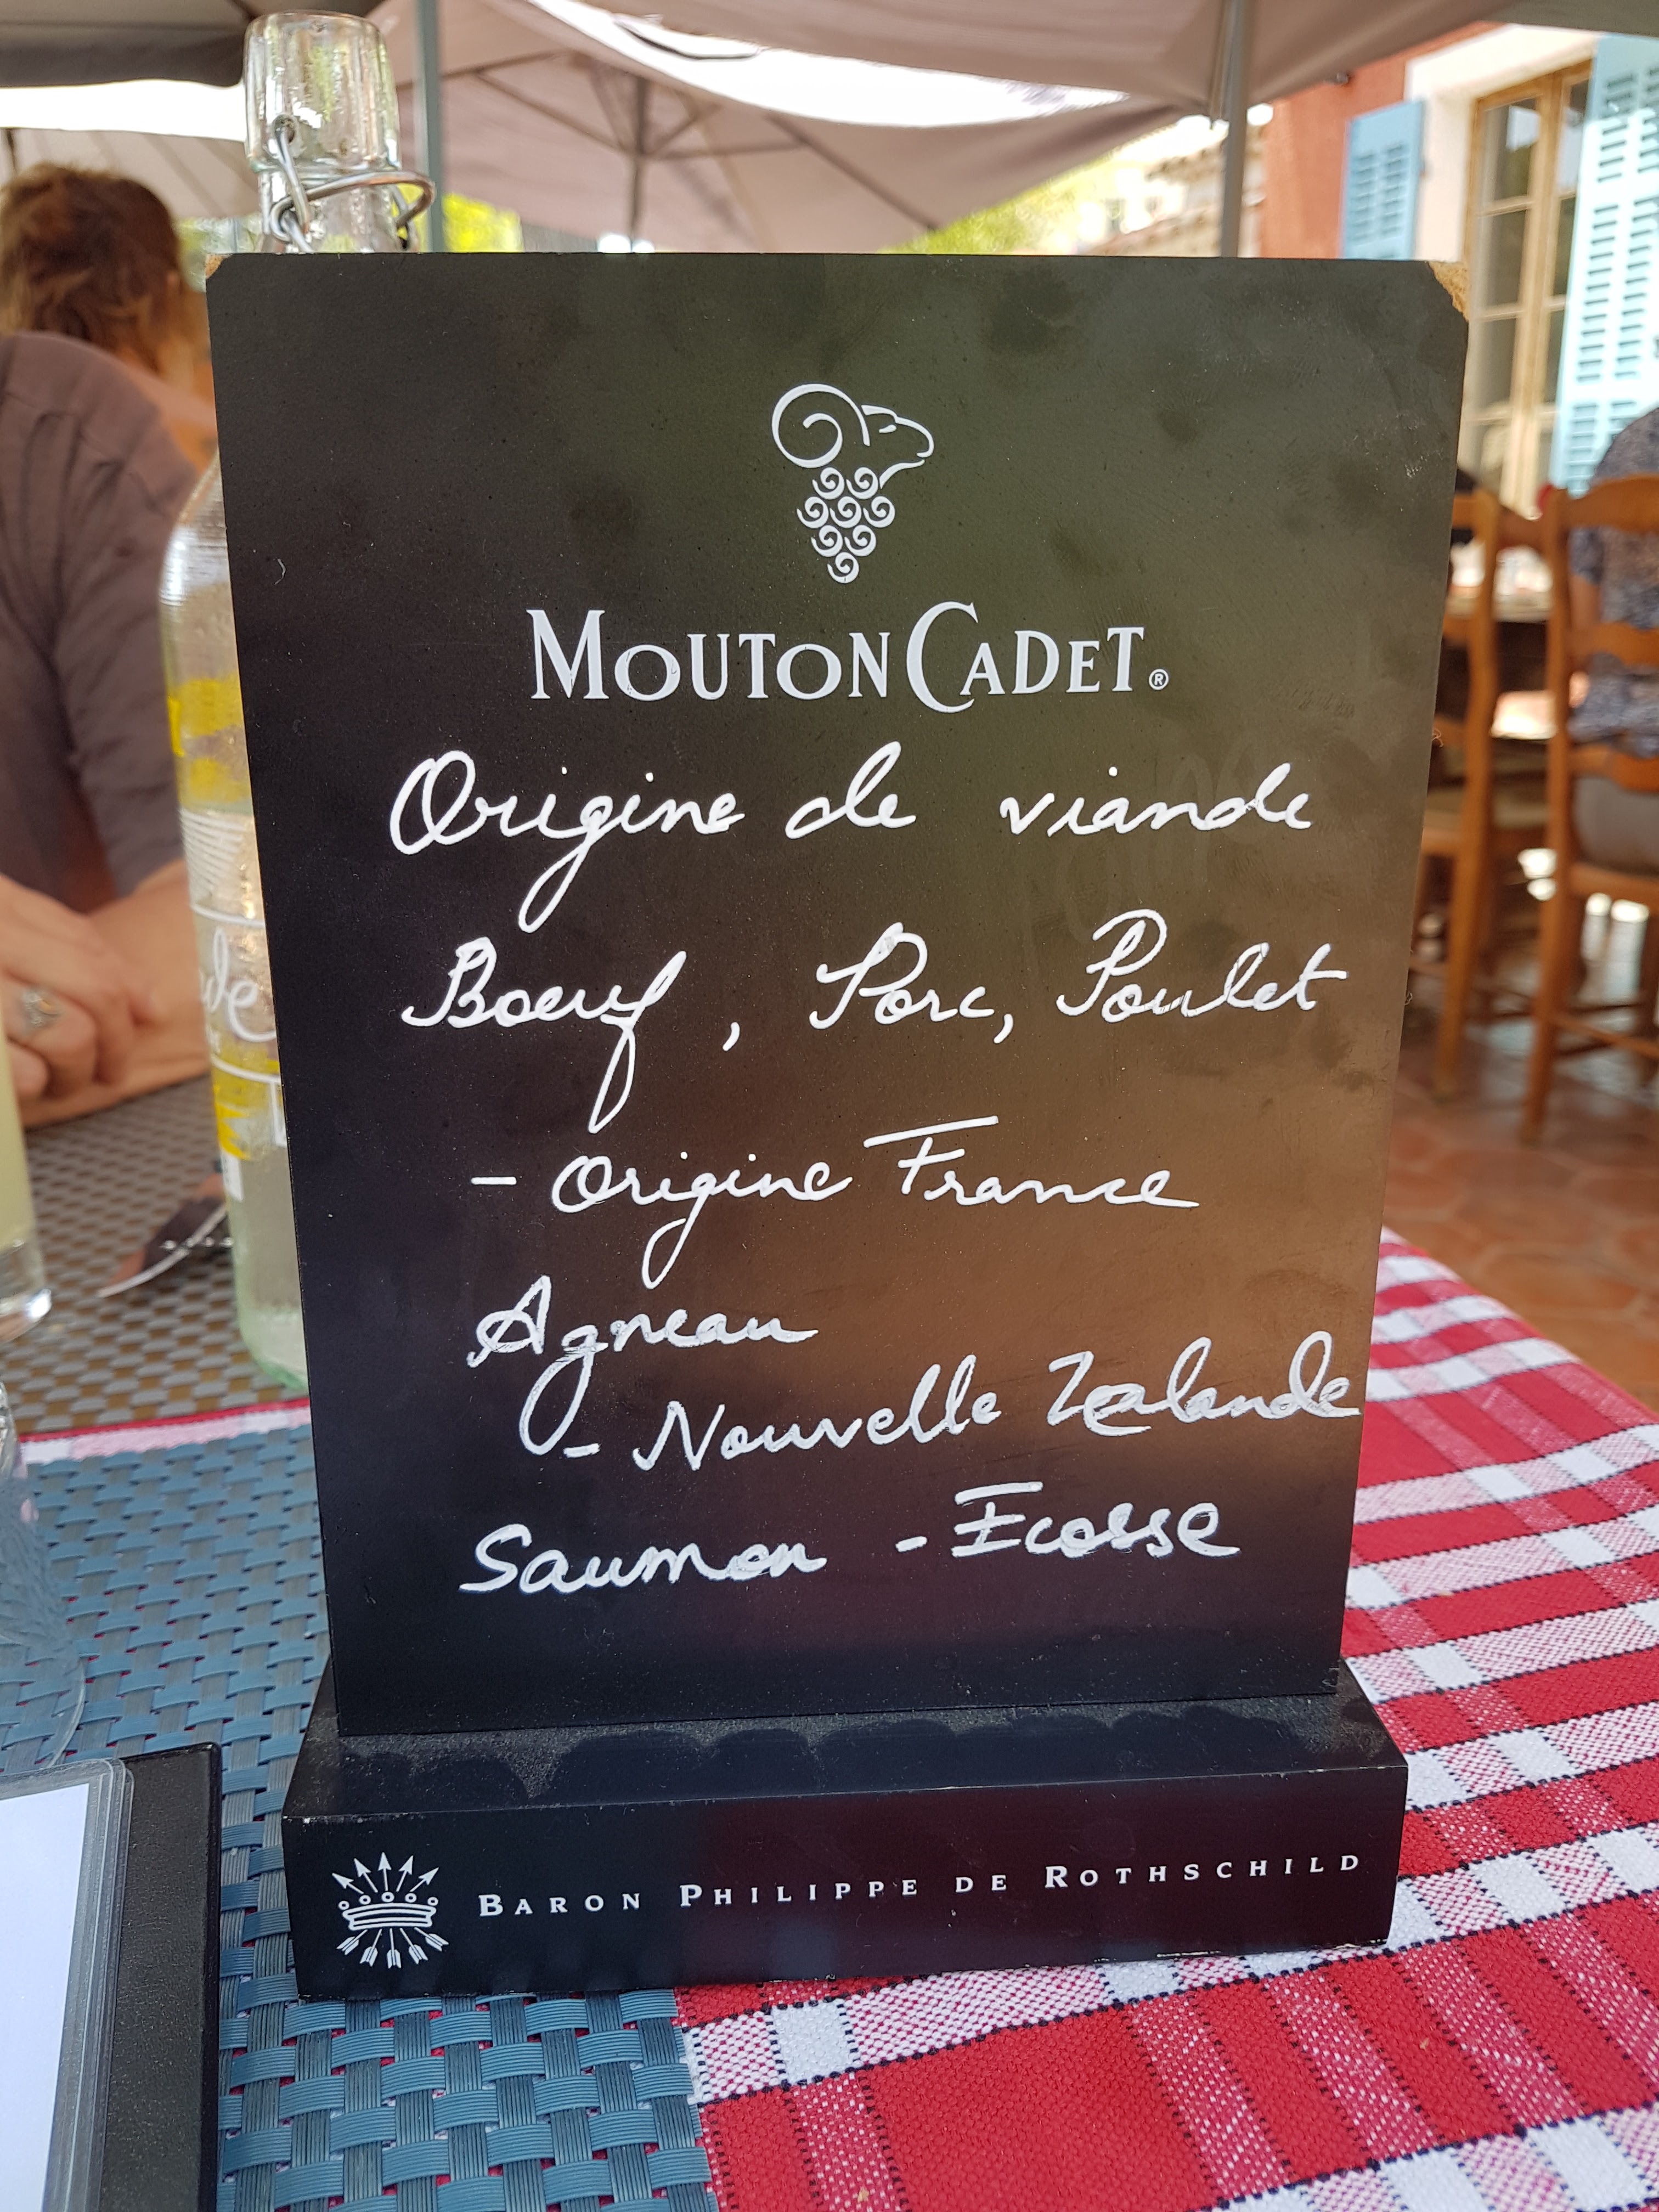 MOUTON CADET®
Origine de viande
Boeuf, Porc, Poulet
- Origine France
Agneau
- Nouvelle Zealande
Saumon - Ecosse
BARON PHILIPPE DE ROTHSCHILD